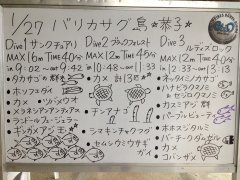 1/27 バリカサグ島 ☆恭子☆
Dive1 サンクチュアリ
MAX 16m TIME 40分
in 9:02 → out 9:42
タカサゴ
ホソフエダイ
カメ・ツバメウオ
メラネシアンアンティアス
ラボールフュージュラー
ギンガメアジ
Dive2 ブラックフォレスト
MAX 12m TIME 45分
in 10:48 → out 11:33
カメ 計13匹
チンアナゴ
シマキンチャクフグ
セムシウミウサギガイ
Dive3 ルディスロック
MAX 12m TIME 40分
in 12:33 → out 13:13
ネッタイミノカサゴ
ハナビラクマノミ
カスミアジ
パープルビューティー
ホホスジタルミ
バーチークダムゼル
カメ
コバンザメ